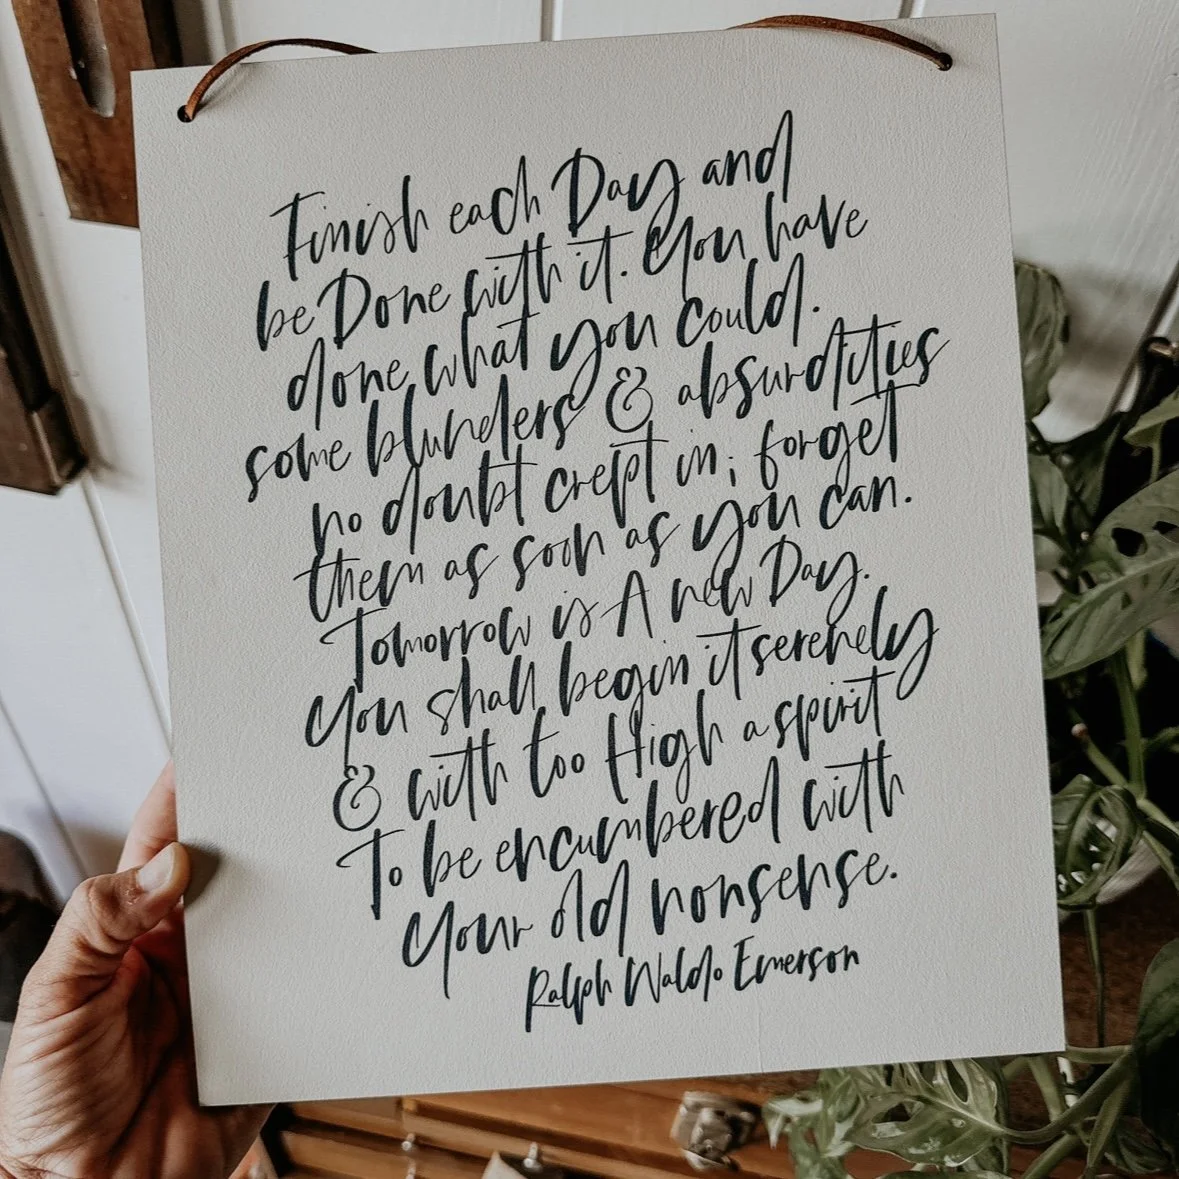 Finish each Day and
be Done with it. You have
done what you could.
some blunders & absurdities
no doubt crept in; forget
them as soon as you can.
Tomorrow is A new Day.
You shall begin it serenely
& with too High a spirit
To be encumbered with
Your old nonsense.
Ralph Waldo Emerson